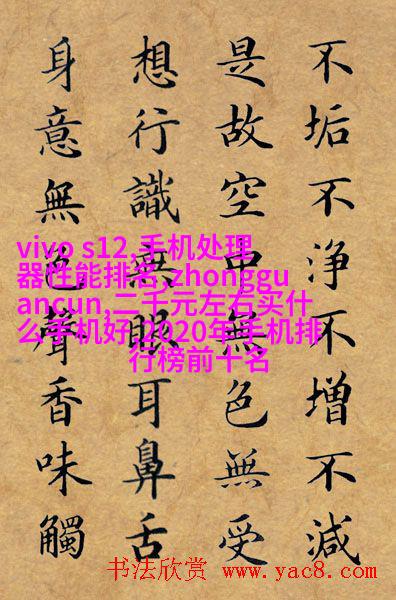 不垢不净不增不減
是故空中無色無受
想行識無眼耳鼻舌
身意無色聲香味觸
vivo s12,手机处理
器性能排名,zhonggu
ancun,二千元左右买什
么手机好,2020年手机排
行榜前十名
书法欣赏 www.yac8.com